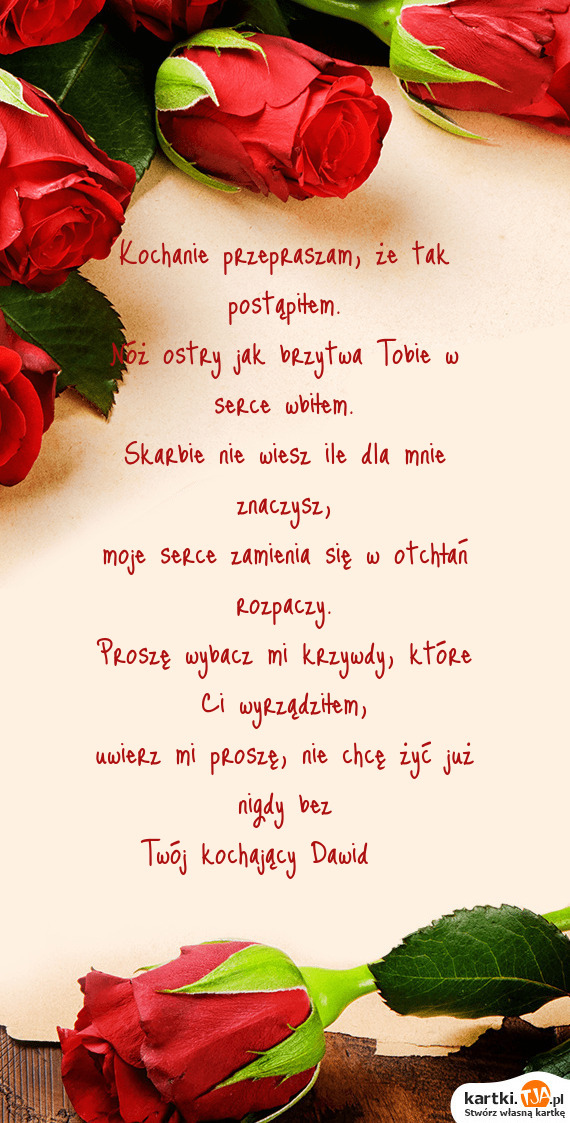 Kochanie przepraszam, że tak
postąpiłem.
Nóż ostry jak brzytwa Tobie w
serce wbiłem.
Skarbie nie wiesz ile dla mnie
znaczysz,
moje serce zamienia się w otchłań
rozpaczy.
Proszę wybacz mi krzywdy, które
Ci wyrządziłem,
uwierz mi proszę, nie chcę żyć już
nigdy bez
Twój kochający Dawid
kartki.TJA.pl
Stwórz własną kartkę